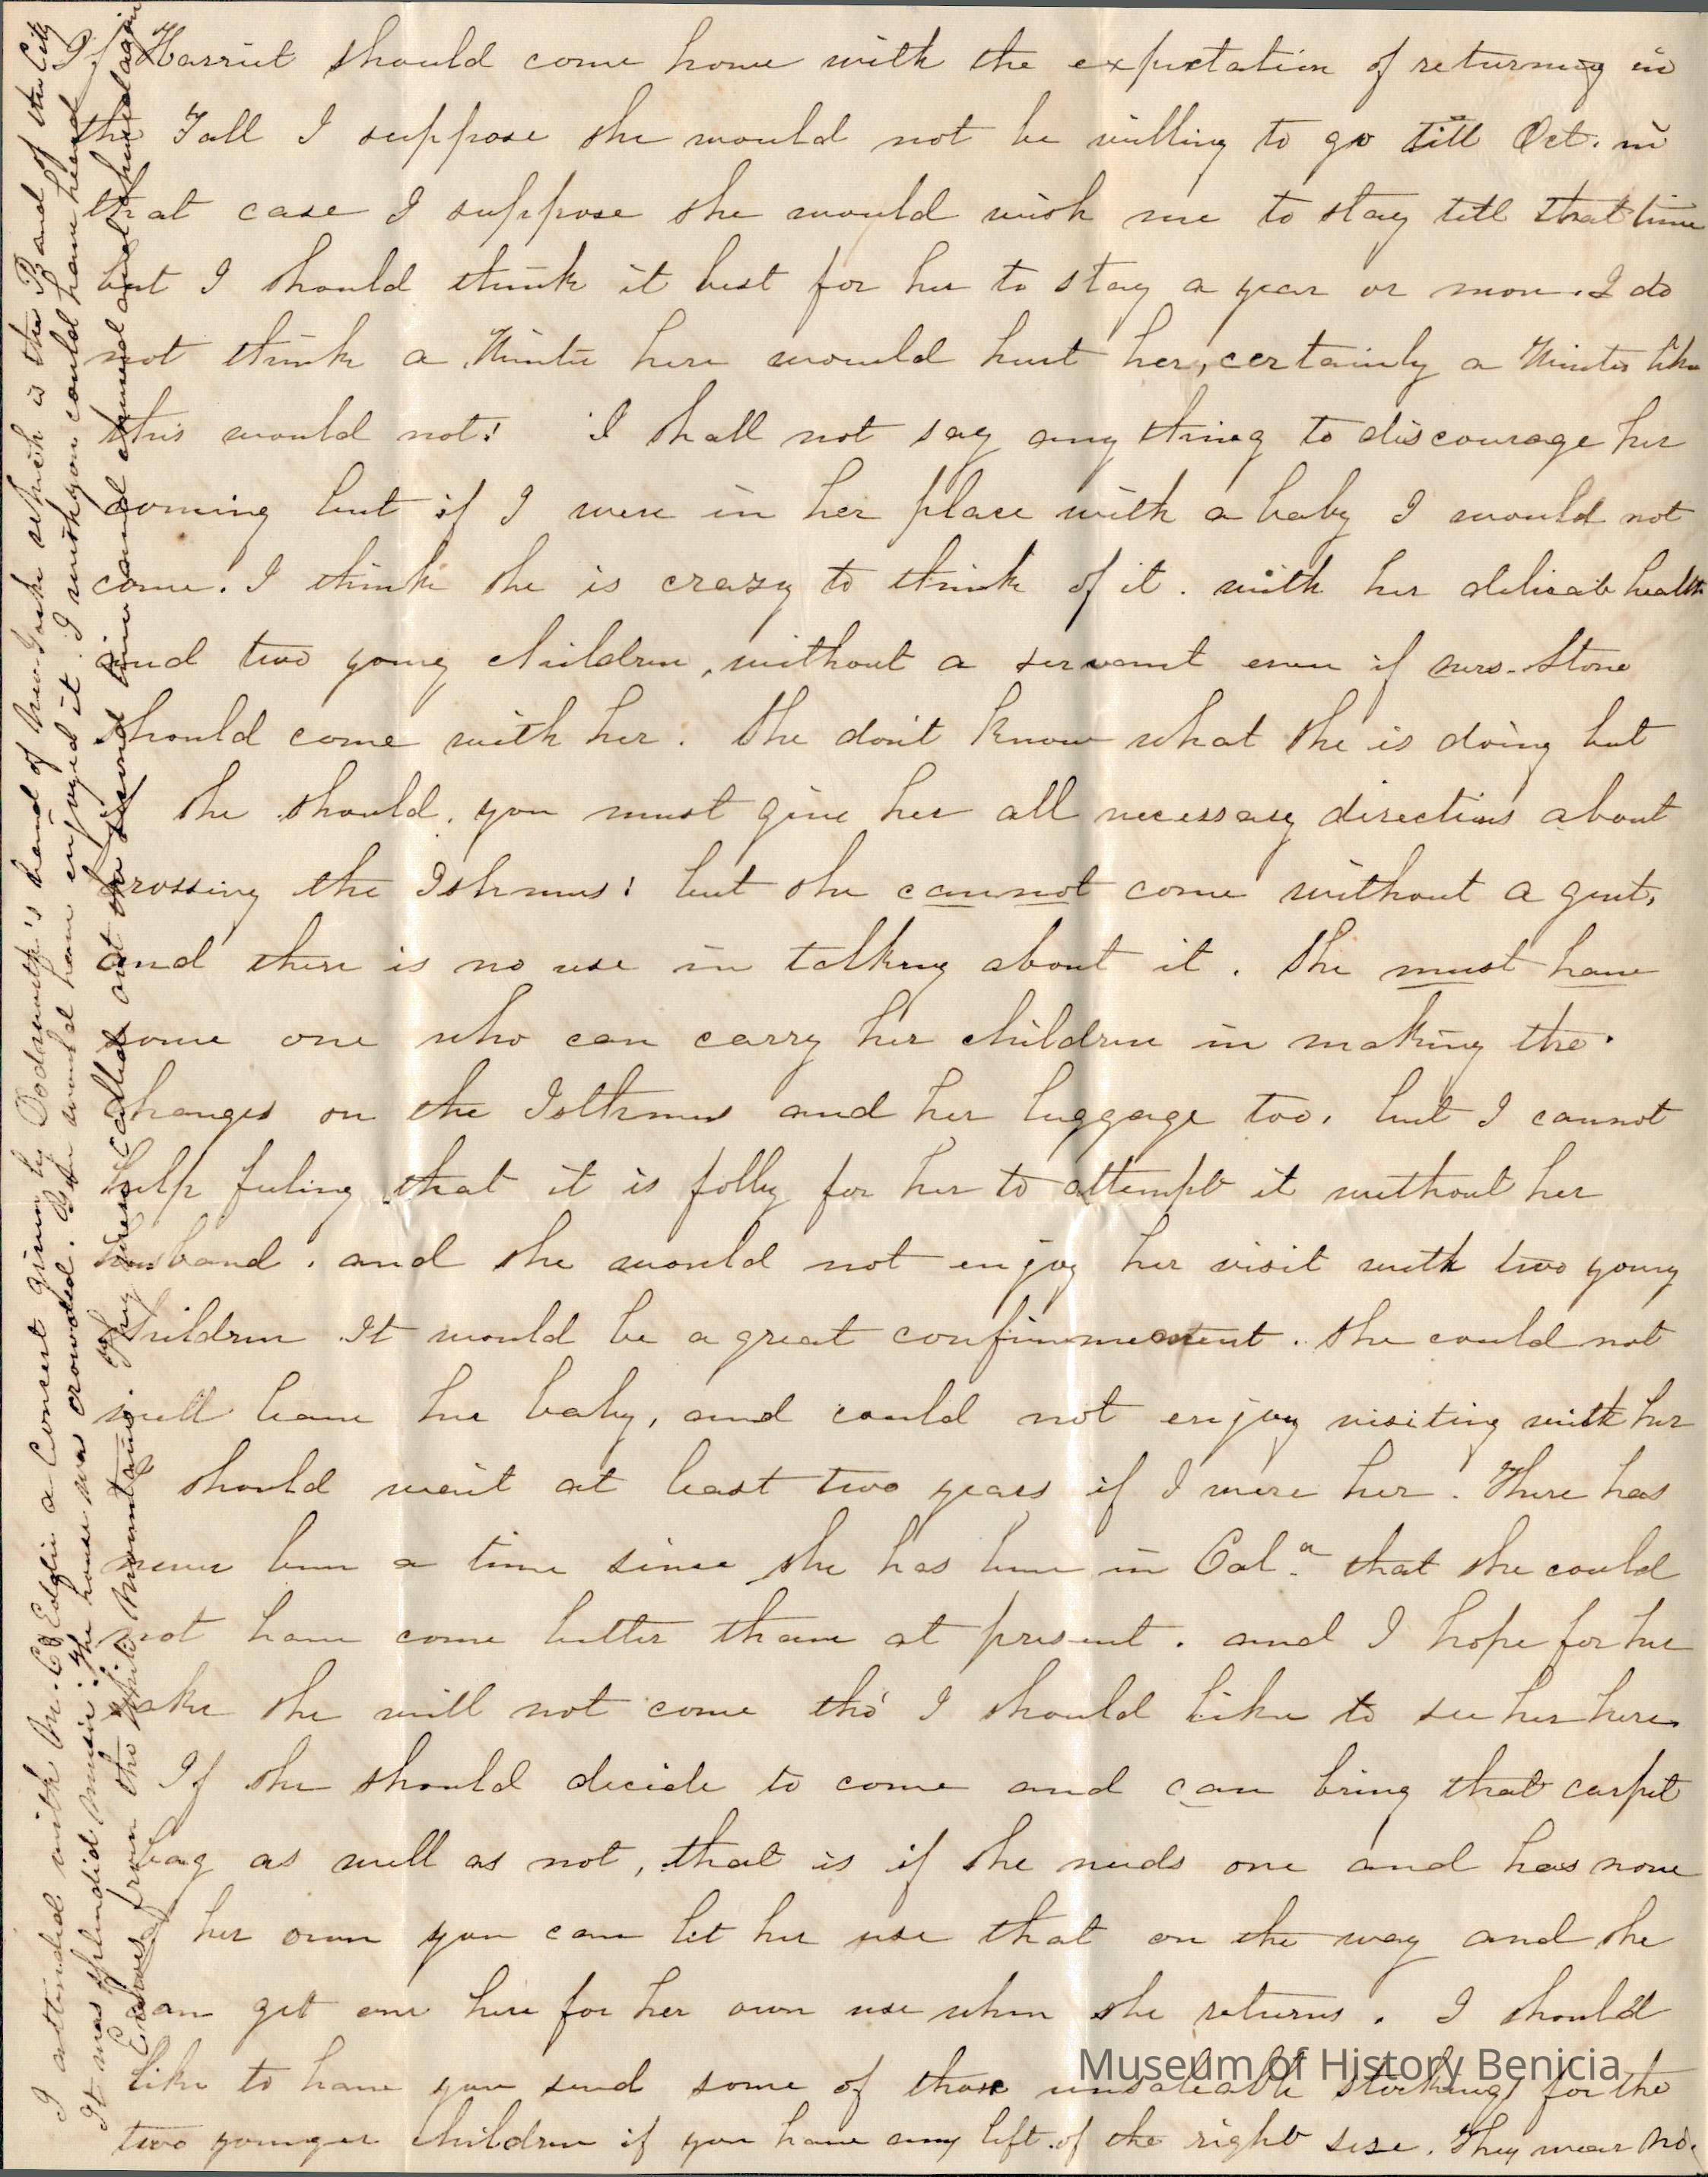 If Harriet should come home with the expectation of returning in
the Fall I suppose she would not be willing to go till Oct. in
that case I suppose she would wish me to stay till that time
but I should think it best for her to stay a year or more. I do
not think a Winter here would hurt her, certainly a Winter like
this would not! I shall not say any thing to discourage her
coming but if I were in her place with a baby I would not
come. I think she is crazy to think of it. with her delicate health
and two young children, without a servant even if Mrs. Stone
should come with her. She don't know what she is doing but
if she should, you must give her all necessary directions about
crossing the Isthmus! but she cannot come without a gent,
and there is no use in talking about it. She must have
some one who can carry her children in making the
changes on the Isthmus and her luggage too, but I cannot
help feeling that it is folly for her to attempt it without her
husband. and she would not enjoy her visit with two young
children It would be a great confinement. She could not
well leave her baby, and could not enjoy visiting with her
I should wait at least two years if I were her. There has
never been a time since she has been in Cal.a that she could
not have come better than at present. and I hope for her
sake she will not come tho' I should like to see her here.
If she should decide to come and can bring that carpet
bag as well as not, that is if she needs one and has none
of her own you can let her use that on the way and she
can get one here for her own use when she returns. I should
like to have you send some of those unsaleable stockings for the
two younger children if you have any left of the right size. They wear No.
I attended with Mr. C. Eddie a Concert given by Dodsworth's band of New York which is the Band of the City
It was splendid music. The house was crowded. You would have enjoyed it. I wish you could have heard
Echoes from the White Mountains. They were called out the second time and commenced and
Museum of History Benicia